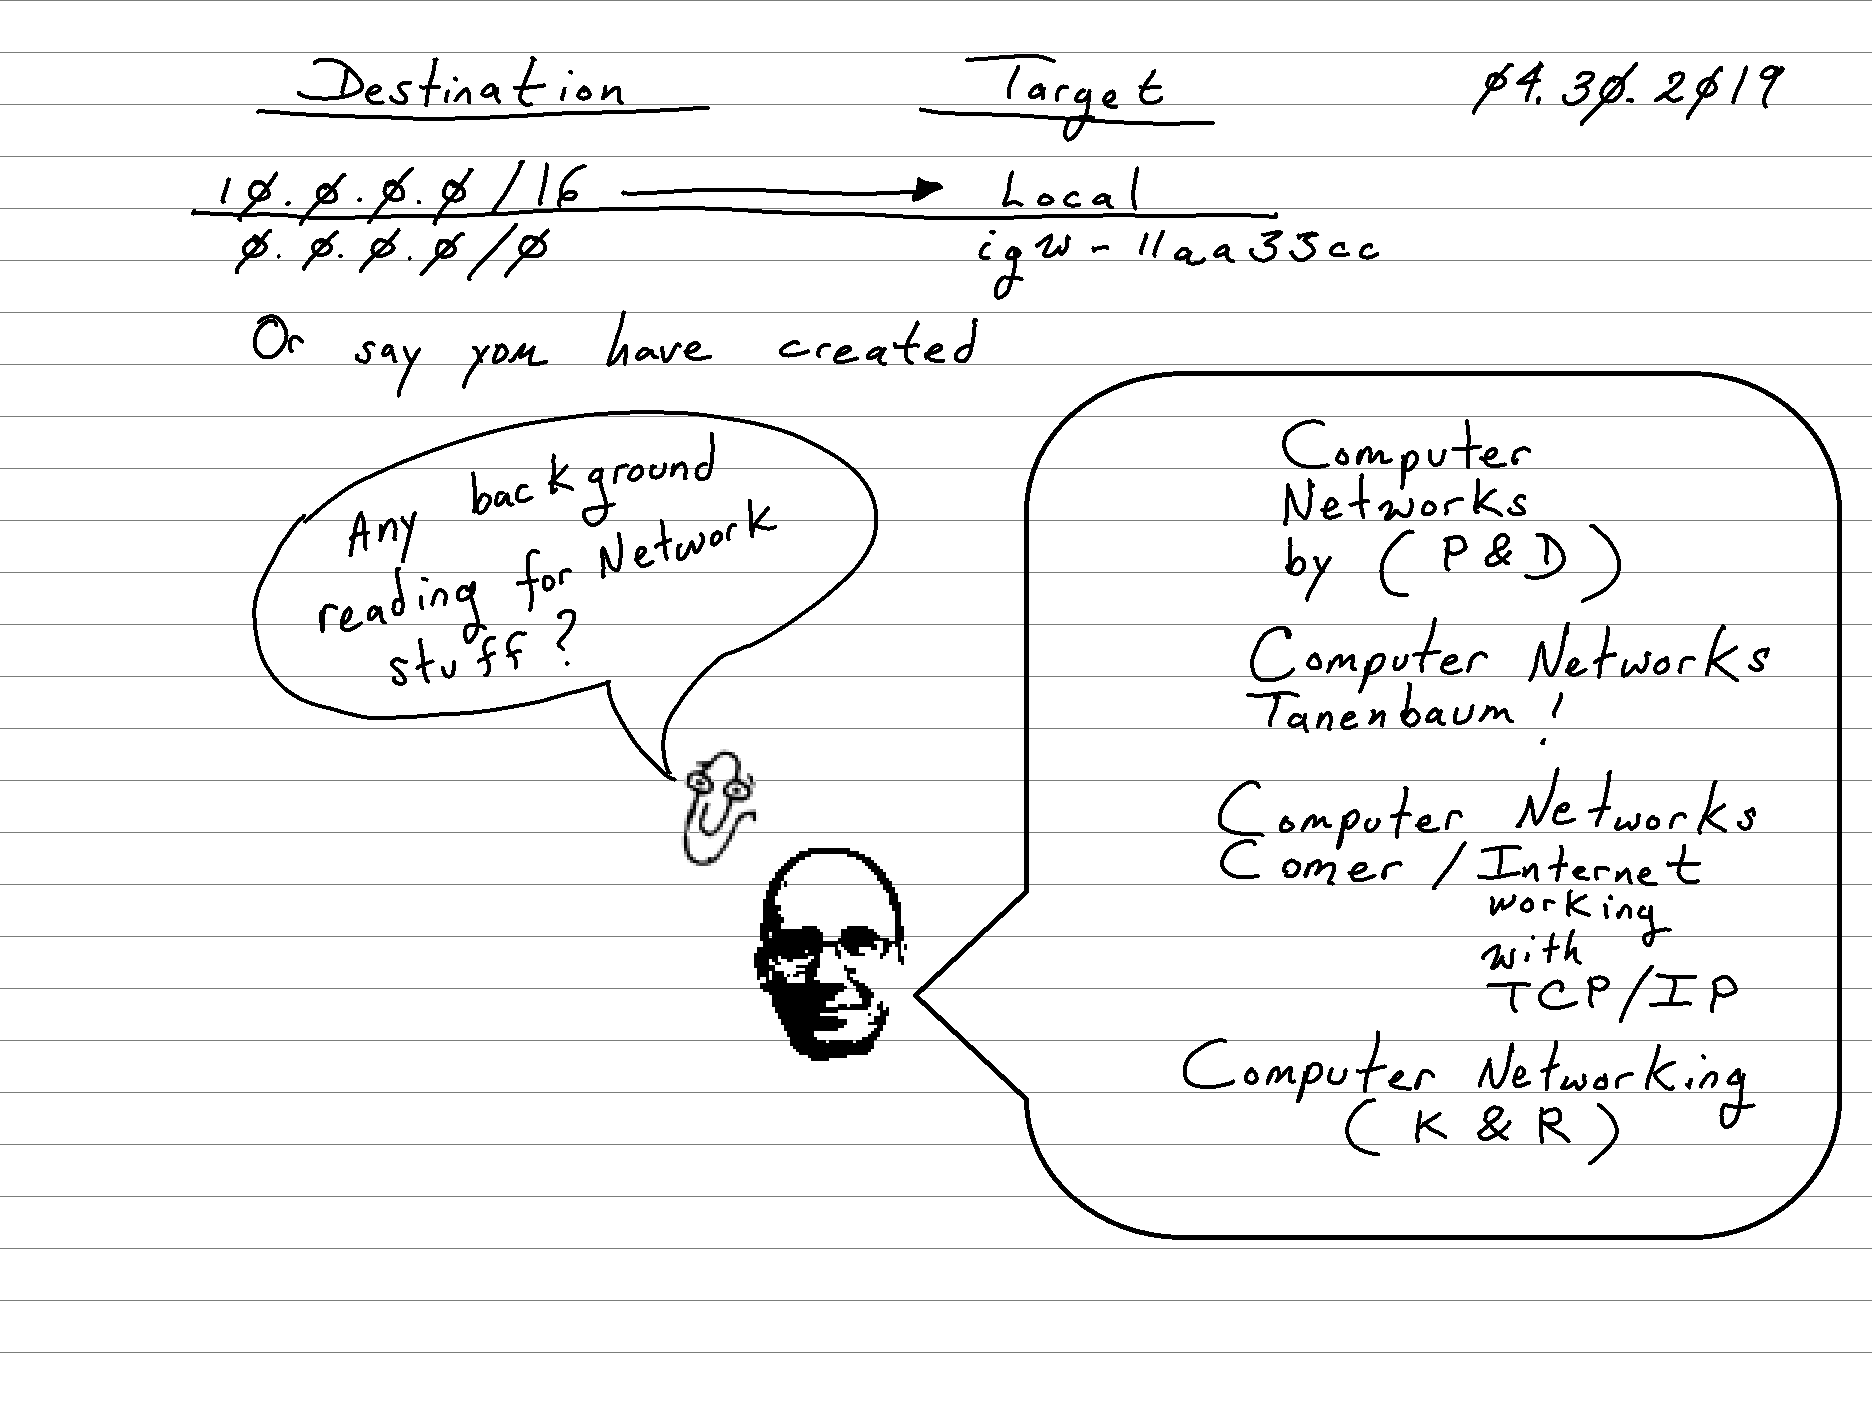 Destination Target 04.30.2019
10.0.0.0/16 → Local
0.0.0.0/0 igw-11aa33cc
Or say you have created
Any background
reading for Network
stuff?
Computer
Networks
by (P & D)
Computer Networks
Tanenbaum!
Computer Networks
Comer / Internet
working
with
TCP/IP
Computer Networking
(K & R)